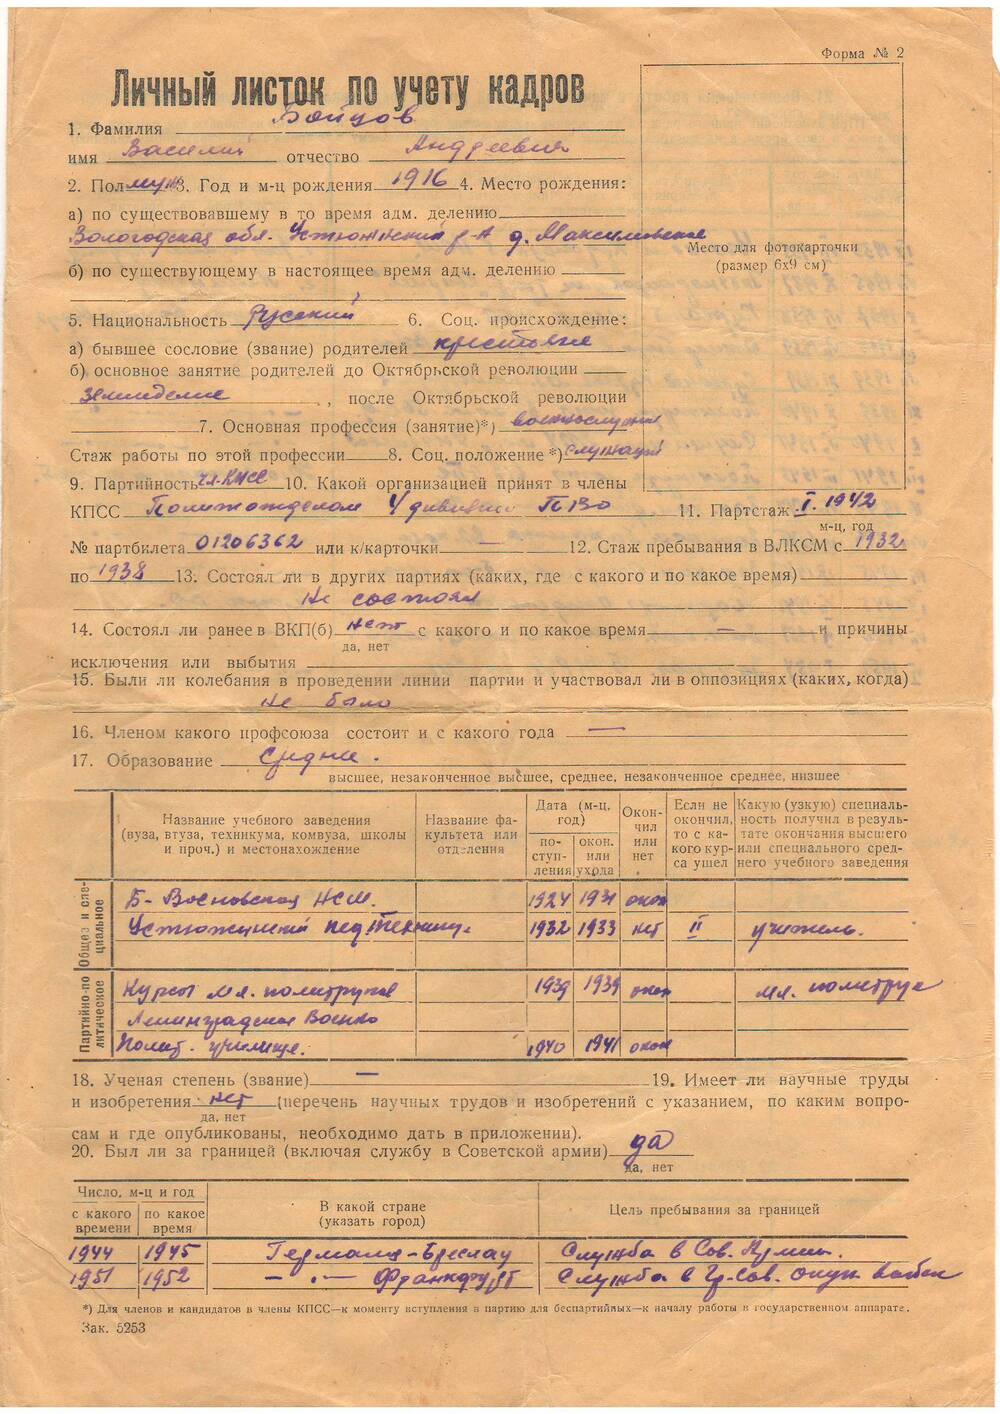 Форма № 2
Личный листок по учету кадров
1. Фамилия Бойцов
имя Василий отчество Андреевич
2. Пол муж 3. Год и м-ц рождения 1916 4. Место рождения:
а) по существовавшему в то время адм. делению
Вологодская обл. Устюженский р-н д. Максимовское
Место для фотокарточки
(размер 6х9 см)
б) по существующему в настоящее время адм. делению
5. Национальность Русский 6. Соц. происхождение:
а) бывшее сословие (звание) родителей крестьяне
б) основное занятие родителей до Октябрьской революции
земледелие, после Октябрьской революции
7. Основная профессия (занятие)*) военнослужащ
Стаж работы по этой профессии 8. Соц. положение *) служащий
9. Партийность чл. КПСС 10. Какой организацией принят в члены
КПСС Политотделом 4 дивизии ПВО 11. Партстаж I. 1942
м-ц, год
№ партбилета 01206362 или к/карточки — 12. Стаж пребывания в ВЛКСМ с 1932
по 1938 13. Состоял ли в других партиях (каких, где с какого и по какое время)
Не состоял
14. Состоял ли ранее в ВКП(б) нет с какого и по какое время — и причины
да, нет
исключения или выбытия
15. Были ли колебания в проведении линии партии и участвовал ли в оппозициях (каких, когда)
Не было
16. Членом какого профсоюза состоит и с какого года —
17. Образование Среднее.
высшее, незаконченное высшее, среднее, незаконченное среднее, низшее
Название учебного заведения (вуза, втуза, техникума, комвуза, школы и проч.) и местонахождение
Название факультета или отделения
Дата (м-ц, год)
поступления
окон. или ухода
Окончил или нет
Если не окончил, то с какого курса ушел
Какую (узкую) специальность получил в результате окончания высшего или специального среднего учебного заведения
Общее и специальное
Б- НСШ. 1924 1931 окон
Устюженский педтехникум 1932 1933 нет II учитель.
Партийно-политическое
Курсы мл. политруков 1939 1939 окон мл. политрук
Ленинградское Военно
Полит. училище. 1940 1941 окон
18. Ученая степень (звание) — 19. Имеет ли научные труды
и изобретения нет (перечень научных трудов и изобретений с указанием, по каким вопро-
да, нет
сам и где опубликованы, необходимо дать в приложении).
20. Был ли за границей (включая службу в Советской армии) да
да, нет
Число, м-ц и год
с какого времени
по какое время
В какой стране (указать город)
Цель пребывания за границей
1944 1945 Германия-Бреслау Служба в Сов. Армии.
1951 1952 — " — Франкфурт Служба в Гр. Сов. оккуп. войск
*) Для членов и кандидатов в члены КПСС—к моменту вступления в партию для беспартийных—к началу работы в государственном аппарате.
Зак. 5253